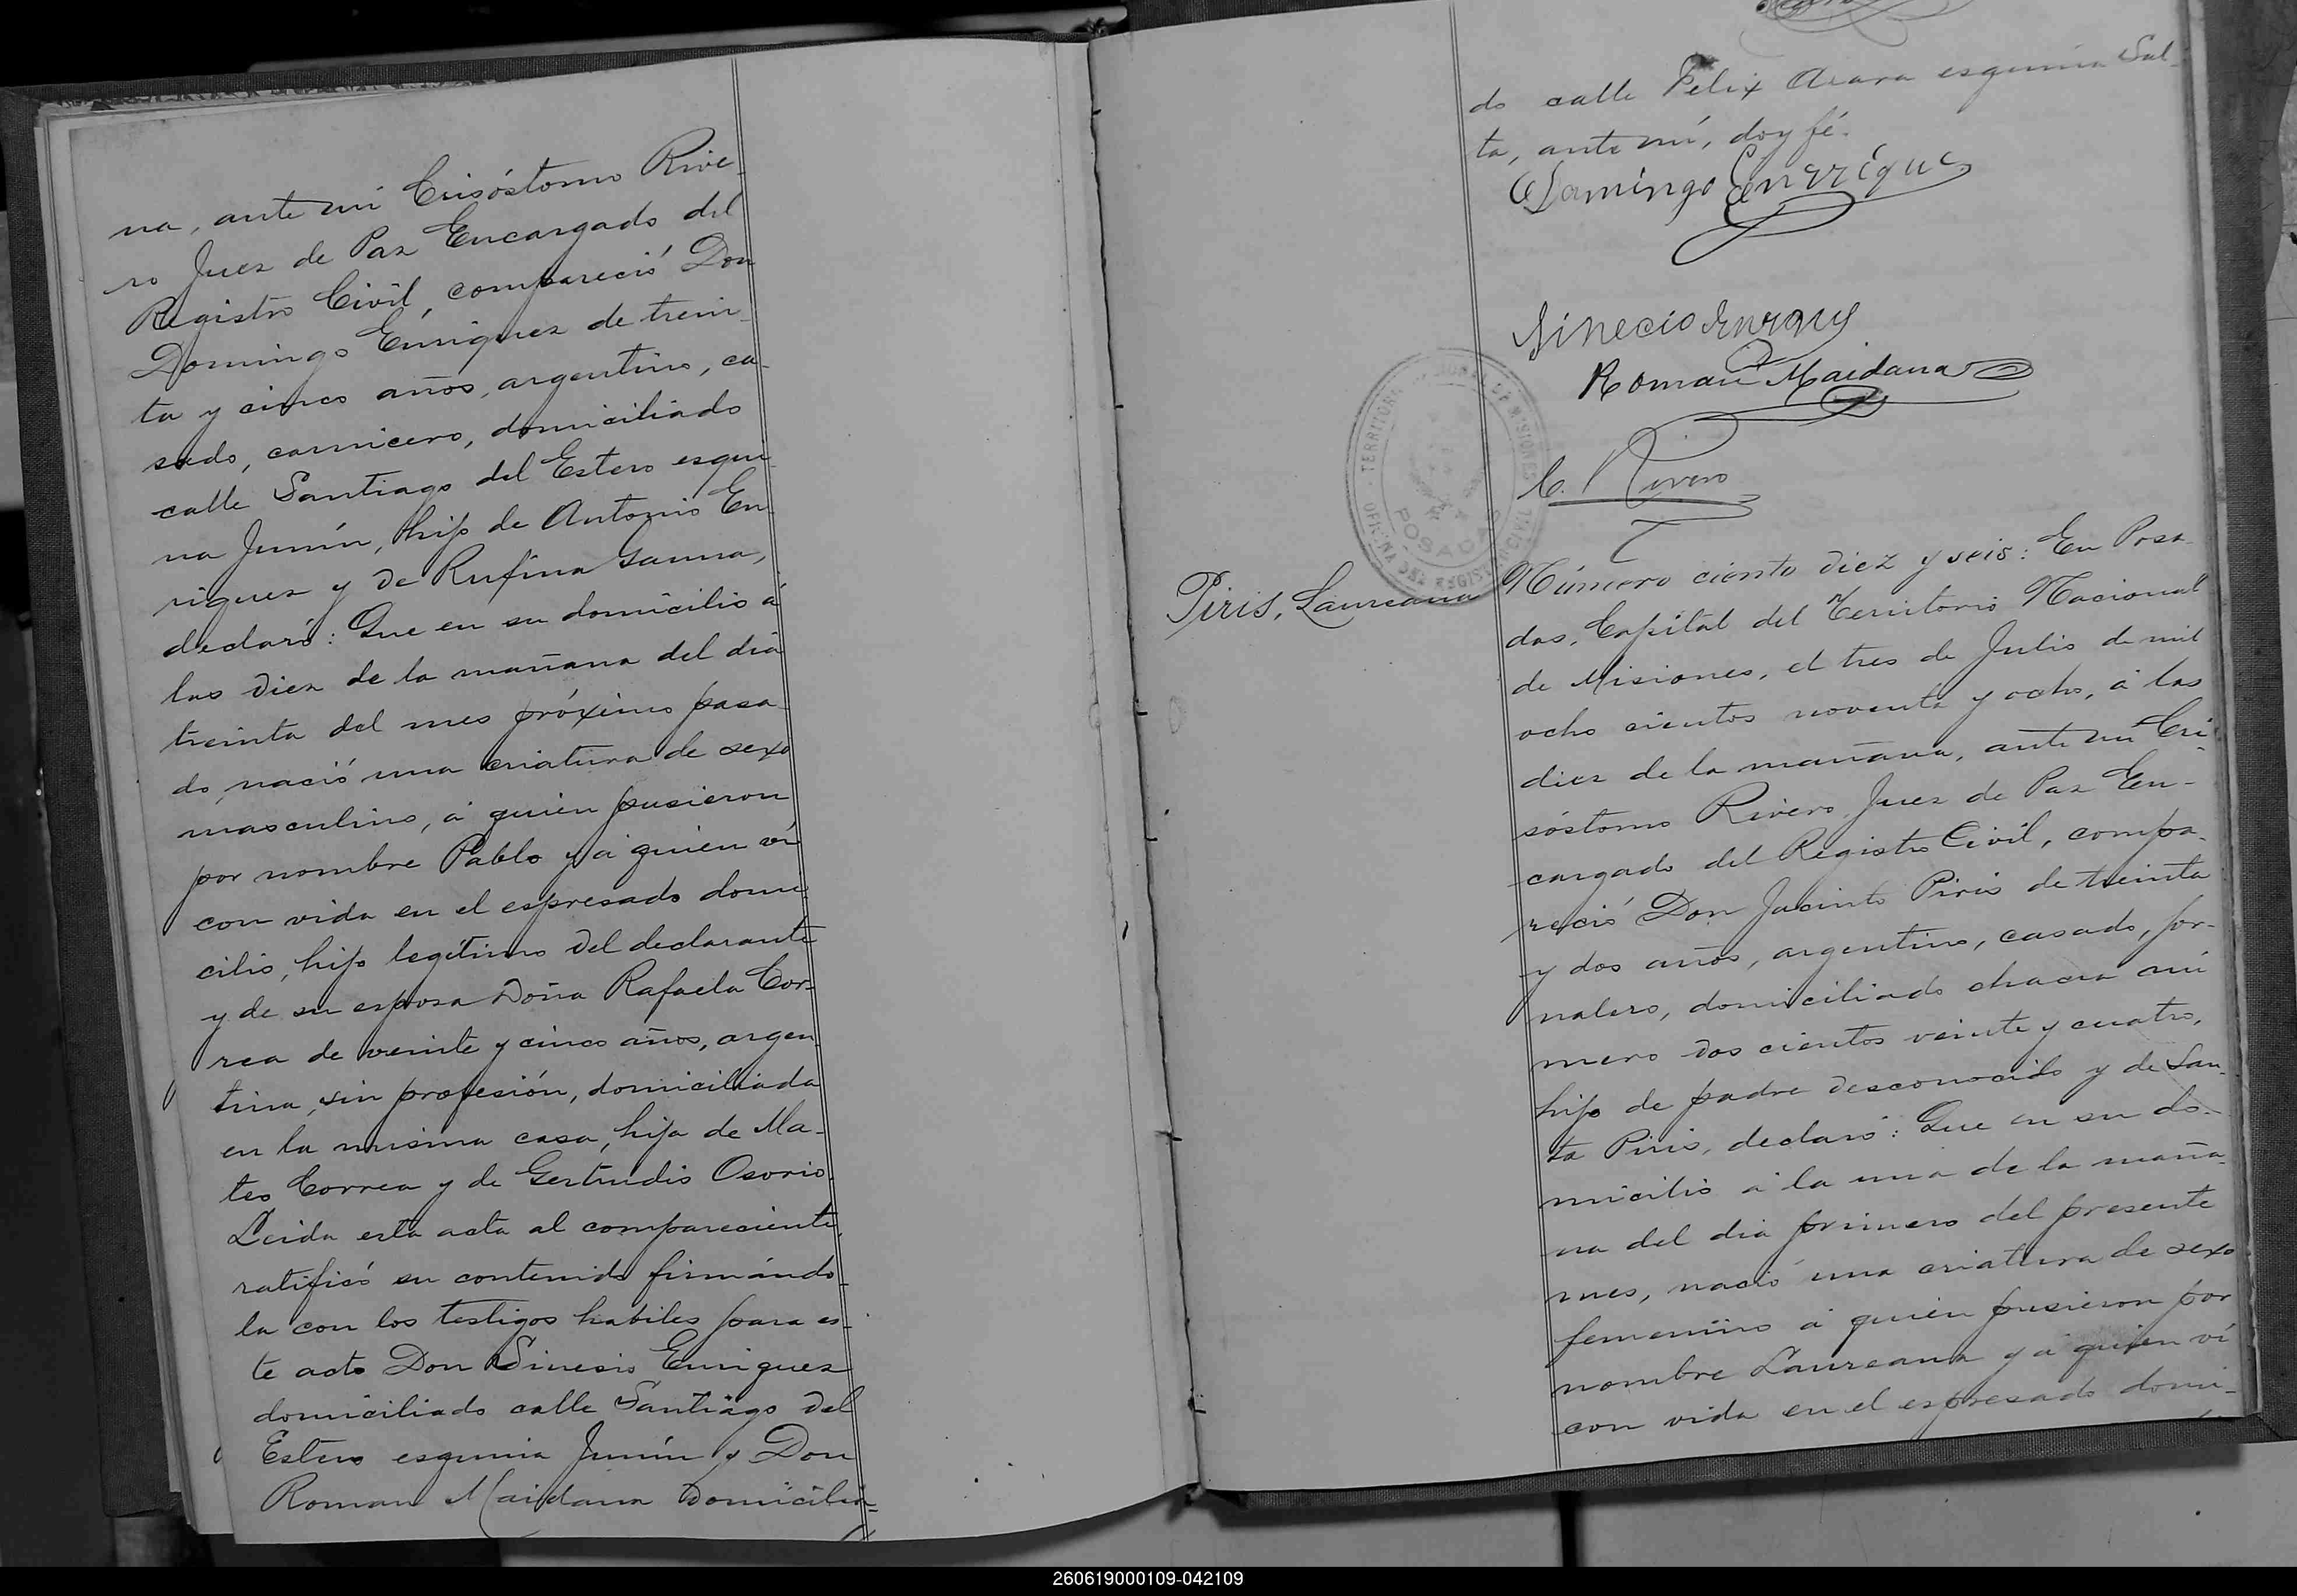 na, ante mí Crisóstomo Rive-
ro Juez de Paz Encargado del
Registro Civil, compareció Don
Domingo Enriquez de trein-
ta y cinco años, argentino, ca-
sado, carnicero, domiciliado
calle Santiago del Estero esqui-
na Junín, hijo de Antonio En-
riquez y de Rufina
declaró: Que en su domicilio á
las diez de la mañana del dia
treinta del mes próximo pasa-
do, nació una criatura de sexo
masculino, á quien pusieron
por nombre Pablo y á quien ví
con vida en el espresado domi-
cilio, hijo legítimo del declarante
y de su esposa Doña Rafaela Cor-
rea de veinte y cinco años, argen-
tina, sin profesión, domiciliada
en la misma casa, hija de Ma-
teo Correa y de Gertrudis Osorio.
Leida esta acta al compareciente,
ratificó su contenido firmándo-
la con los testigos habiles para es-
te acto Don Sinesio Enriquez
domiciliado calle Santiago del
Estero esquina Junín y Don
Roman Maidana domicilia-
do calle Felix Azara esquina Sal-
ta, ante mí, doy fé.
Domingo Enrrique
Sinecio
Roman Maidana
C. Rivero
TERRITORIO NACIONAL DE MISIONES
POSADAS
OFICINA DEL REGISTRO
Piris, Laureana
Número ciento diez y seis: En Posa-
das, Capital del Territorio Nacional
de Misiones, el tres de Julio de mil
ocho cientos noventa y ocho, á las
diez de la mañana, ante mí Cri-
sóstomo Rivero Juez de Paz En-
cargado del Registro Civil, compa-
reció Don Jacinto Piris de treinta
y dos años, argentino, casado, jor-
nalero, domiciliado chacra nú-
mero dos cientos veinte y cuatro,
hijo de padre desconocido y de San-
ta Piris, declaró: Que en su do-
micilio á la una de la maña-
na del dia primero del presente
mes, nació una criatura de sexo
femenino á quien pusieron por
nombre Laureana y á quien ví
con vida en el espresado domi-
260619000109-042109